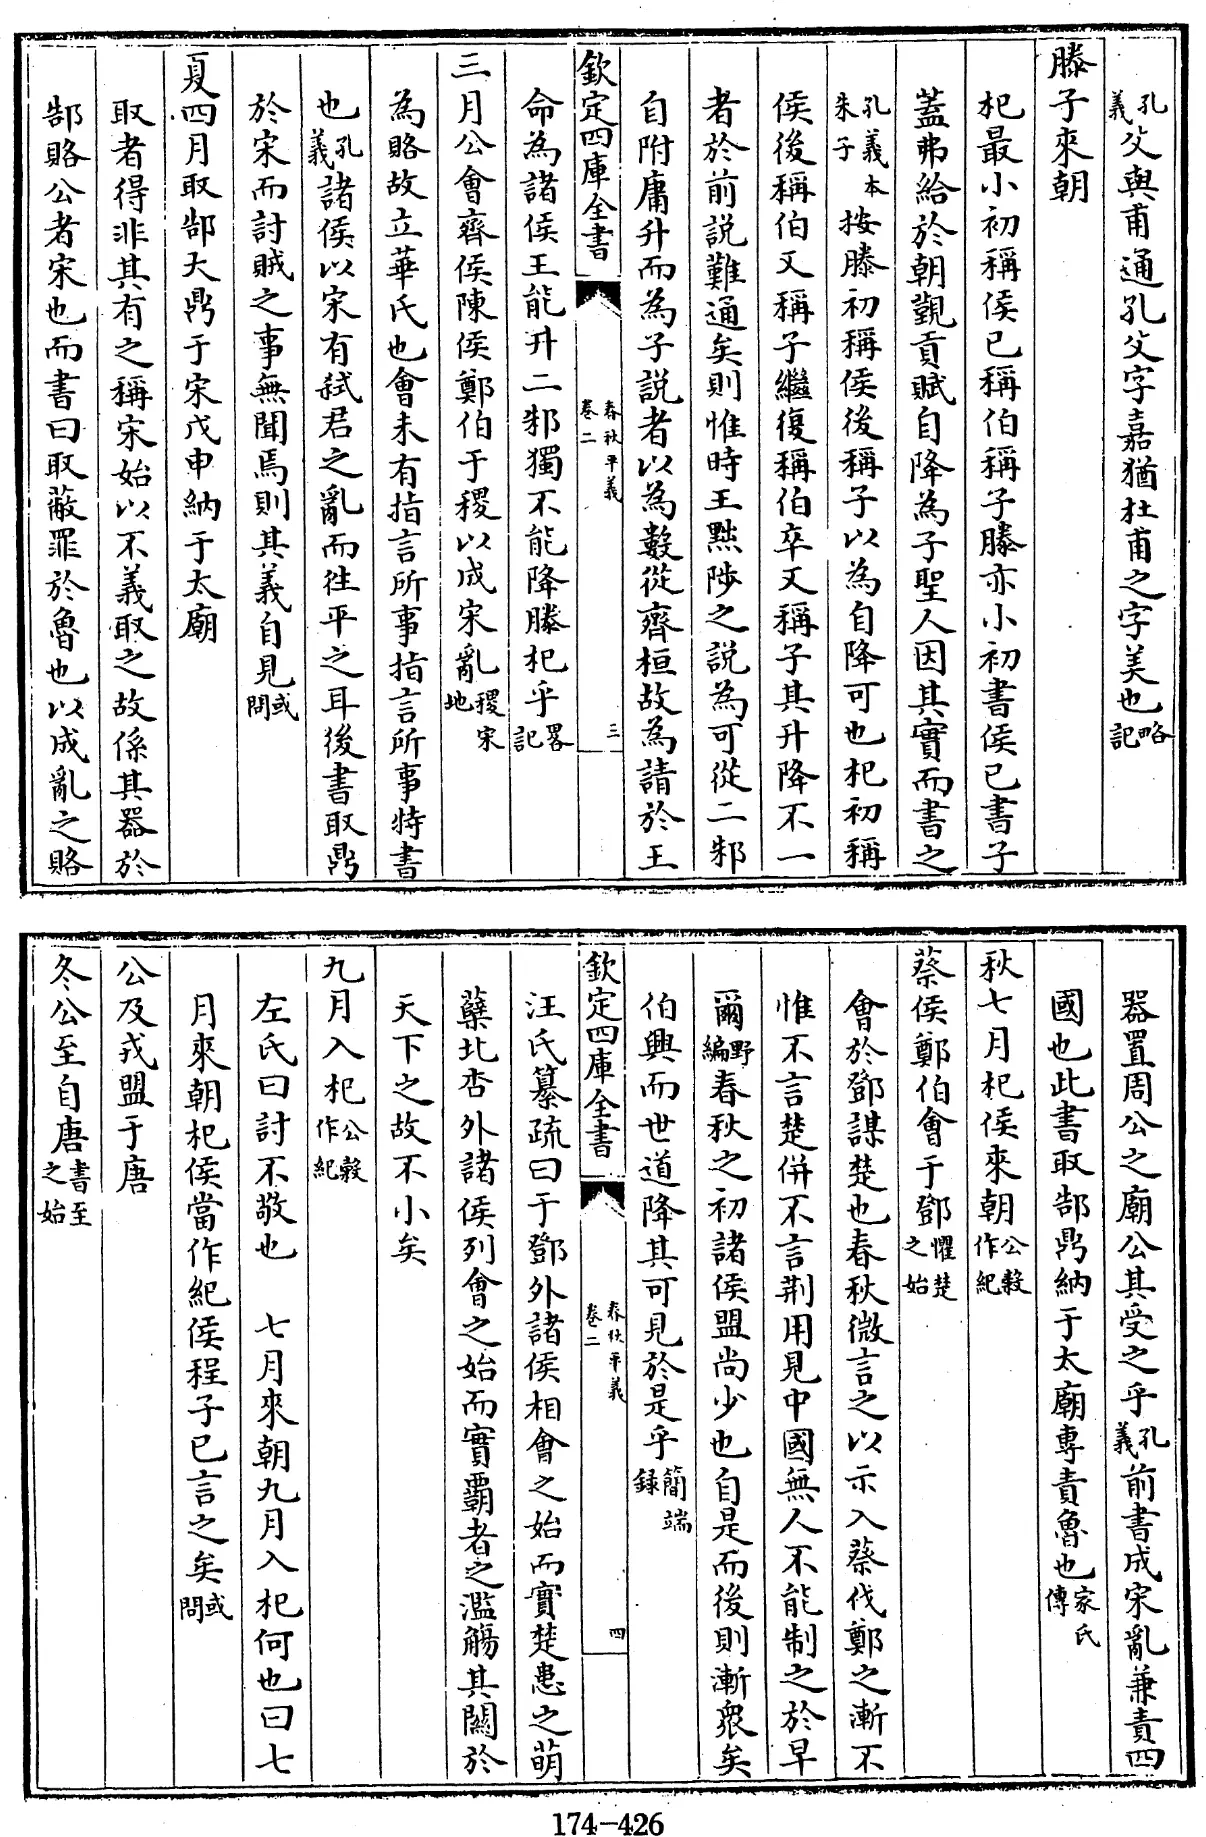 孔義父與甫通孔父字嘉猶杜甫之字美也略記
滕子來朝
杞最小初稱侯已稱伯稱子滕亦小初書侯已書子
蓋弗給於朝覲貢賦自降為子聖人因其實而書之
孔義本朱子按滕初稱侯後稱子以為自降可也杞初稱
侯後稱伯又稱子繼復稱伯卒又稱子其升降不一
者於前説難通矣則惟時王黜陟之説為可從二邾
自附庸升而為子説者以為數從齊桓故為請於王
欽定四庫全書 春秋平義 卷二 三
命為諸侯王能升二邾獨不能降滕杞乎畧記
三月公會齊侯陳侯鄭伯于稷以成宋亂稷宋地
為賂故立華氏也會未有指言所事指言所事特書
也孔義諸侯以宋有弑君之亂而往平之耳後書取鼎
於宋而討賊之事無聞焉則其義自見或問
夏四月取郜大鼎于宋戊申納于太廟
取者得非其有之稱宋始以不義取之故係其器於
郜賂公者宋也而書曰取蔽罪於魯也以成亂之賂
器置周公之廟公其受之乎孔義前書成宋亂兼責四
國也此書取郜鼎納于太廟專責魯也家氏傳
秋七月杞侯來朝公穀作紀
蔡侯鄭伯會于鄧懼楚之始
會於鄧謀楚也春秋微言之以示入蔡伐鄭之漸不
惟不言楚併不言荆用見中國無人不能制之於早
爾野編春秋之初諸侯盟尚少也自是而後則漸衆矣
伯興而世道降其可見於是乎簡端録
欽定四庫全書 春秋平義 卷二 四
汪氏纂疏曰于鄧外諸侯相會之始而實楚患之萌
蘖北杏外諸侯列會之始而實霸者之濫觴其關於
天下之故不小矣
九月入杞公穀作紀
左氏曰討不敬也 七月來朝九月入杞何也曰七
月來朝杞侯當作紀侯程子已言之矣或問
公及戎盟于唐
冬公至自唐書至之始
174-426